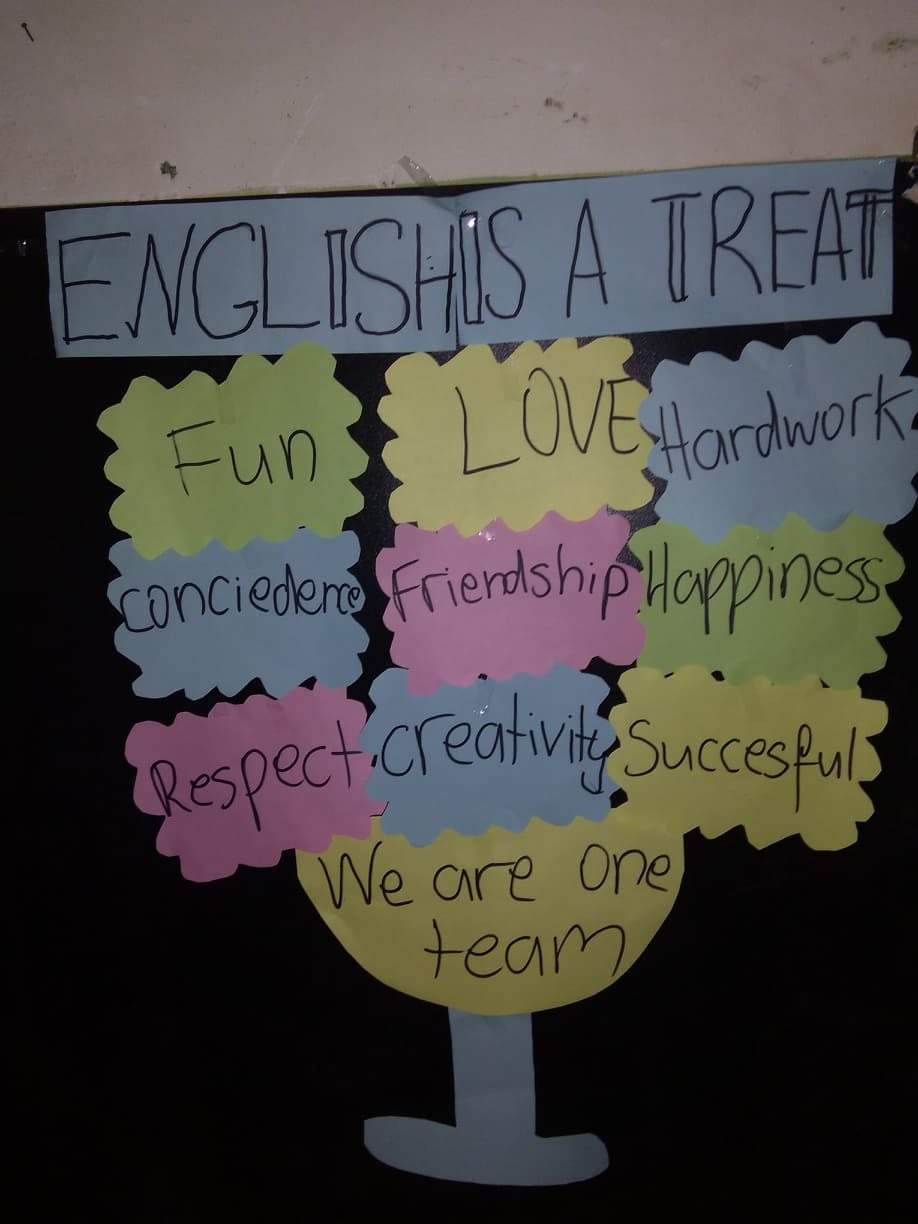 ENGLISH IS A TREAT
Fun
LOVE
Hardwork
conciedence
Friendship
Happiness
Respect
creativity
Succesful
We are one
team